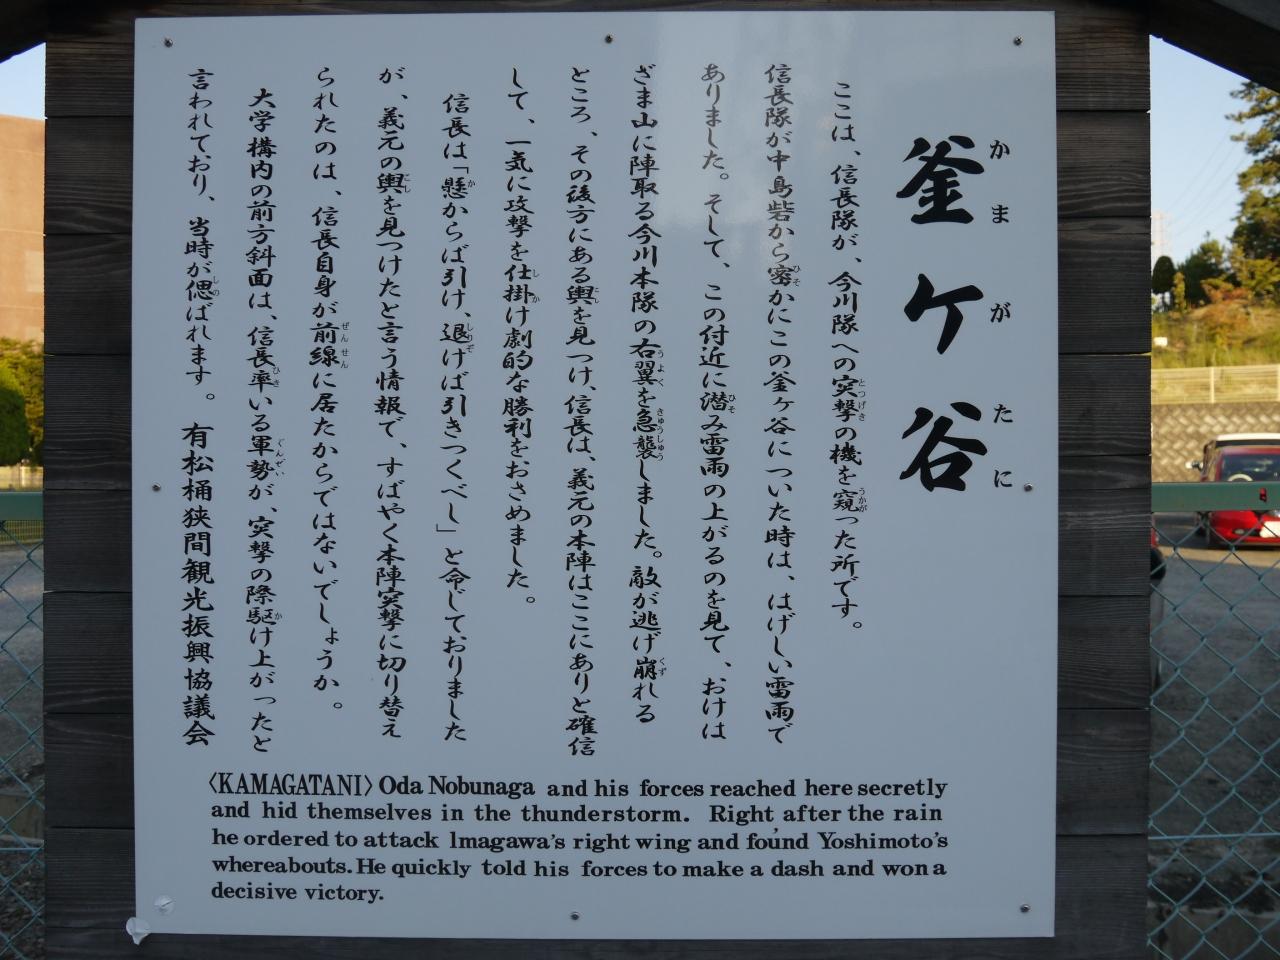 釜ヶ谷
かまがたに
ここは、信長隊が、今川隊への突撃の機を窺った所です。
信長隊が中島砦から密かにこの釜ヶ谷についた時は、はげしい雷雨で
ありました。そして、この付近に潜み雷雨の上がるのを見て、おけは
ざま山に陣取る今川本隊の右翼を急襲しました。敵が逃げ崩れる
ところ、その後方にある輿を見つけ、信長は、義元の本陣はここにありと確信
して、一気に攻撃を仕掛け劇的な勝利をおさめました。
信長は「懸からば引け、退けば引きつくべし」と命じておりました
が、義元の輿を見つけたと言う情報で、すばやく本陣突撃に切り替え
られたのは、信長自身が前線に居たからではないでしょうか。
大学構内の前方斜面は、信長率いる軍勢が、突撃の際駆け上がったと
言われており、当時が偲ばれます。 有松桶狭間観光振興協議会
〈KAMAGATANI〉Oda Nobunaga and his forces reached here secretly
and hid themselves in the thunderstorm. Right after the rain
he ordered to attack lmagawa's right wing and found Yoshimoto's
whereabouts. He quickly told his forces to make a dash and won a
decisive victory.